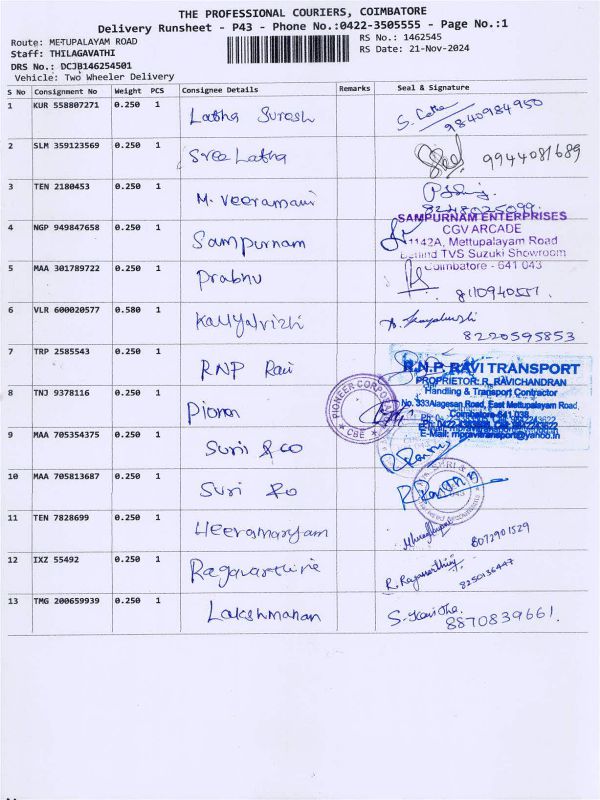 THE PROFESSIONAL COURIERS, COIMBATORE
Delivery Runsheet - P43 - Phone No.:0422-3505555 - Page No.:1
Route: METUPALAYAM ROAD
RS No.: 1462545
Staff: THILAGAVATHI
RS Date: 21-Nov-2024
DRS No.: DCJB146254501
Vehicle: Two Wheeler Delivery
S No Consignment No Weight PCS Consignee Details Remarks Seal & Signature
1 KUR 558807271 0.250 1 Latha Suresh S. Latha 9840984950
2 SLM 359123569 0.250 1 Sree Latha 9944081689
3 TEN 2180453 0.250 1 M. Veeramani 8248025099
4 NGP 949847658 0.250 1 Sampurnam
SAMPURNAM ENTERPRISES
CGV ARCADE
1142A, Mettupalayam Road
Behind TVS Suzuki Showroom
Coimbatore - 641 043
5 MAA 301789722 0.250 1 Prabhu 8110940551.
6 VLR 600020577 0.580 1 Kayalvizhi 8220595853
7 TRP 2585543 0.250 1 RNP Ravi
R.N.P. RAVI TRANSPORT
PROPRIETOR: R. RAVICHANDRAN
Handling & Transport Contractor
No. 333Alagesan Road, East Mettupalayam Road,
Coimbatore-641 038.
E-Mail: rnpravitransport@yahoo.in
8 TNJ 9378116 0.250 1 Pioneer
PIONEER CORPORA
CBE
9 MAA 705354375 0.250 1 Suri & co
10 MAA 705813687 0.250 1 Suri Co
11 TEN 7828699 0.250 1 8072901529
12 IXZ 55492 0.250 1 8250136447
13 TMG 200659939 0.250 1 Lakshmanan S. Kavitha. 8870839661.